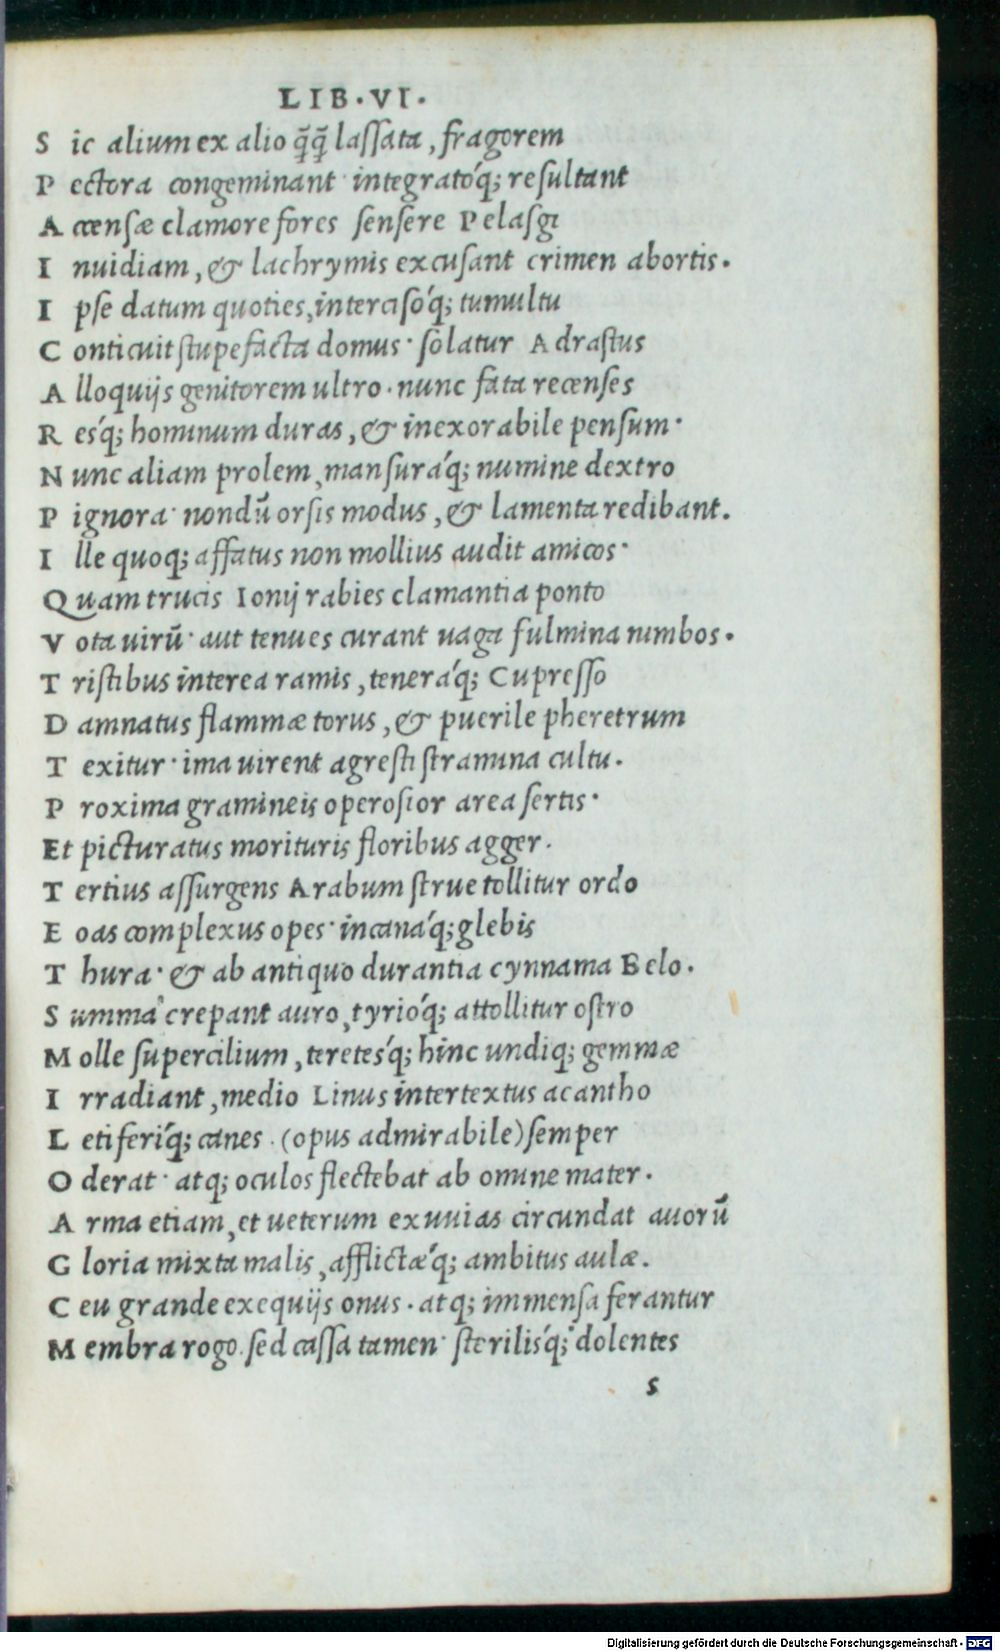 LIB.VI.
S ic alium ex alio q̃q̃ lassata, fragorem
P ectora congeminant· integrató'q; resultant
A ccensæ clamore fores· sensere Pelasgi
I nuidiam, & lachrymis excusant crimen abortis.
I pse datum quoties, interciso'q; tumultu
C onticuit stupefacta domus· solatur Adrastus
A lloquijs genitorem ultro. nunc fata recenses
R es'q; hominum duras, & inexorabile pensum·
N unc aliam prolem, mansurá'q; numine dextro
P ignora· nondũ orsis modus, & lamenta redibant.
I lle quoq; affatus non mollius audit amicos·
Q uam trucis Ionij rabies clamantia ponto
V ota uirũ· aut tenues curant uaga fulmina nimbos.
T ristibus interea ramis, tenerá'q; Cupresso
D amnatus flammæ torus, & puerile pheretrum
T exitur· ima uirent agresti stramina cultu.
P roxima gramineis operosior area sertis·
Et picturatus morituris floribus agger.
T ertius assurgens Arabum strue tollitur ordo
E oas complexus opes· incaná'q; glebis
T hura· & ab antiquo durantia cynnama Belo.
S umma crepant auro, tyrió'q; attollitur ostro
M olle supercilium, teretes'q; hinc undiq; gemmæ
I rradiant, medio Linus intertextus acantho
L etiferi'q; canes. (opus admirabile) semper
O derat· atq; oculos flectebat ab omine mater.
A rma etiam, et ueterum exuuias circundat auorũ
G loria mixta malis, afflictæ'q; ambitus aulæ.
C eu grande exequijs onus. atq; immensa ferantur
M embra rogo. sed cassa tamen· sterilis'q; dolentes
s
Digitalisierung gefördert durch die Deutsche Forschungsgemeinschaft - DFG